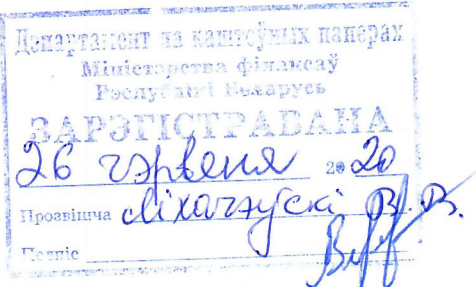 Дэпартамент па каштоўных паперах
Міністэрства фінансаў
Рэспублікі Беларусь
ЗАРЭГІСТРАВАНА
26 чэрвеня 2020
Прозвішча Ліхачэўскі В. В.
Подпіс